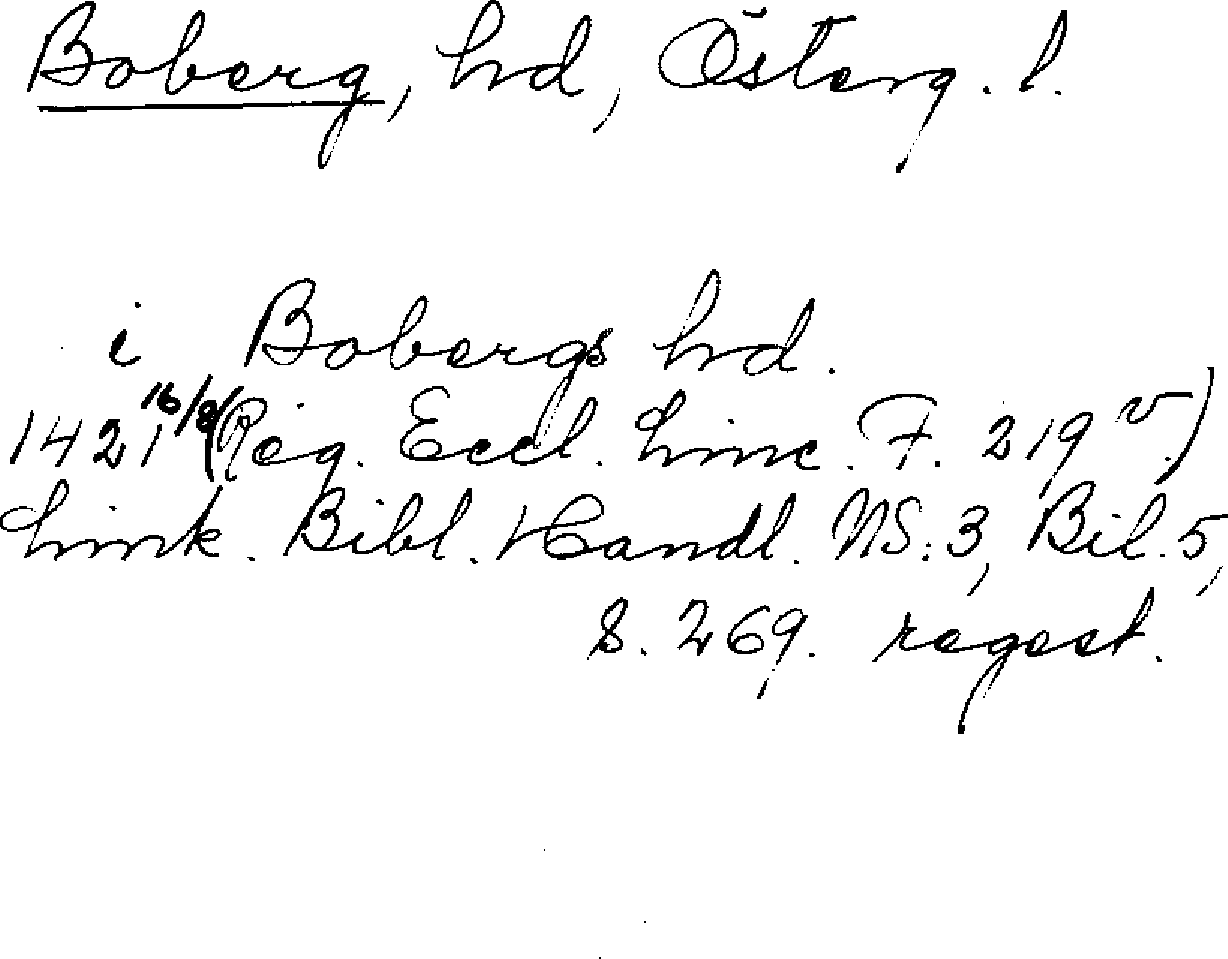 Boberg, hd, Österg. l.
i Bobergs hd.
1421 16/8 (Reg. Eccl. Linc. F. 219 v.)
Link. Bibl. Handl. NS. 3, Bil. 5,
S. 269. regest.